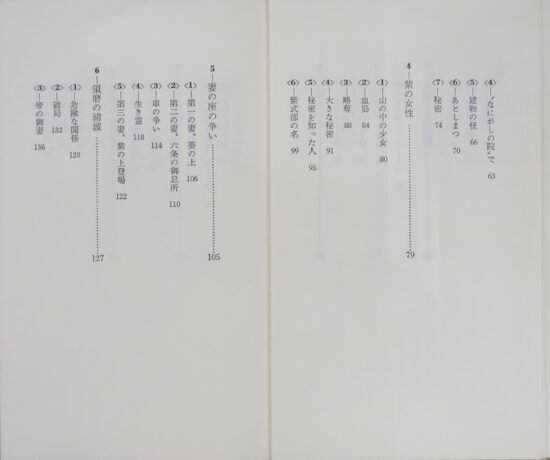 〈4〉―“なにがしの院”で 63
〈5〉―建物の怪 66
〈6〉―あとしまつ 70
〈7〉―秘密 74
4―紫の女性 79
〈1〉―山の中の少女 80
〈2〉―血筋 84
〈3〉―略奪 88
〈4〉―大きな秘密 91
〈5〉―秘密を知った人 95
〈6〉―紫式部の名 99
5―妻の座の争い 105
〈1〉―第一の妻、葵の上 106
〈2〉―第二の妻、六条の御息所 110
〈3〉―車の争い 114
〈4〉―生き霊 118
〈5〉―第三の妻、紫の上登場 122
6―須磨の浦波 127
〈1〉―危険な関係 128
〈2〉―破局 132
〈3〉―帝の御妻 136